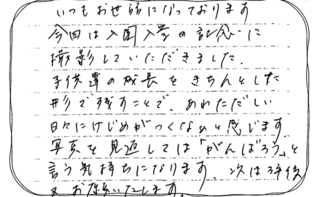 いつもお世話になっております
今回は入園入学の記念に
撮影していただきました。
子供達の成長をきちんとした
形で残すことで、あわただしい
日々にけじめがつくなあと感じます。
写真を見返しては「がんばろう」と
言う気持ちになります。次は3年後
又お願いいたします。